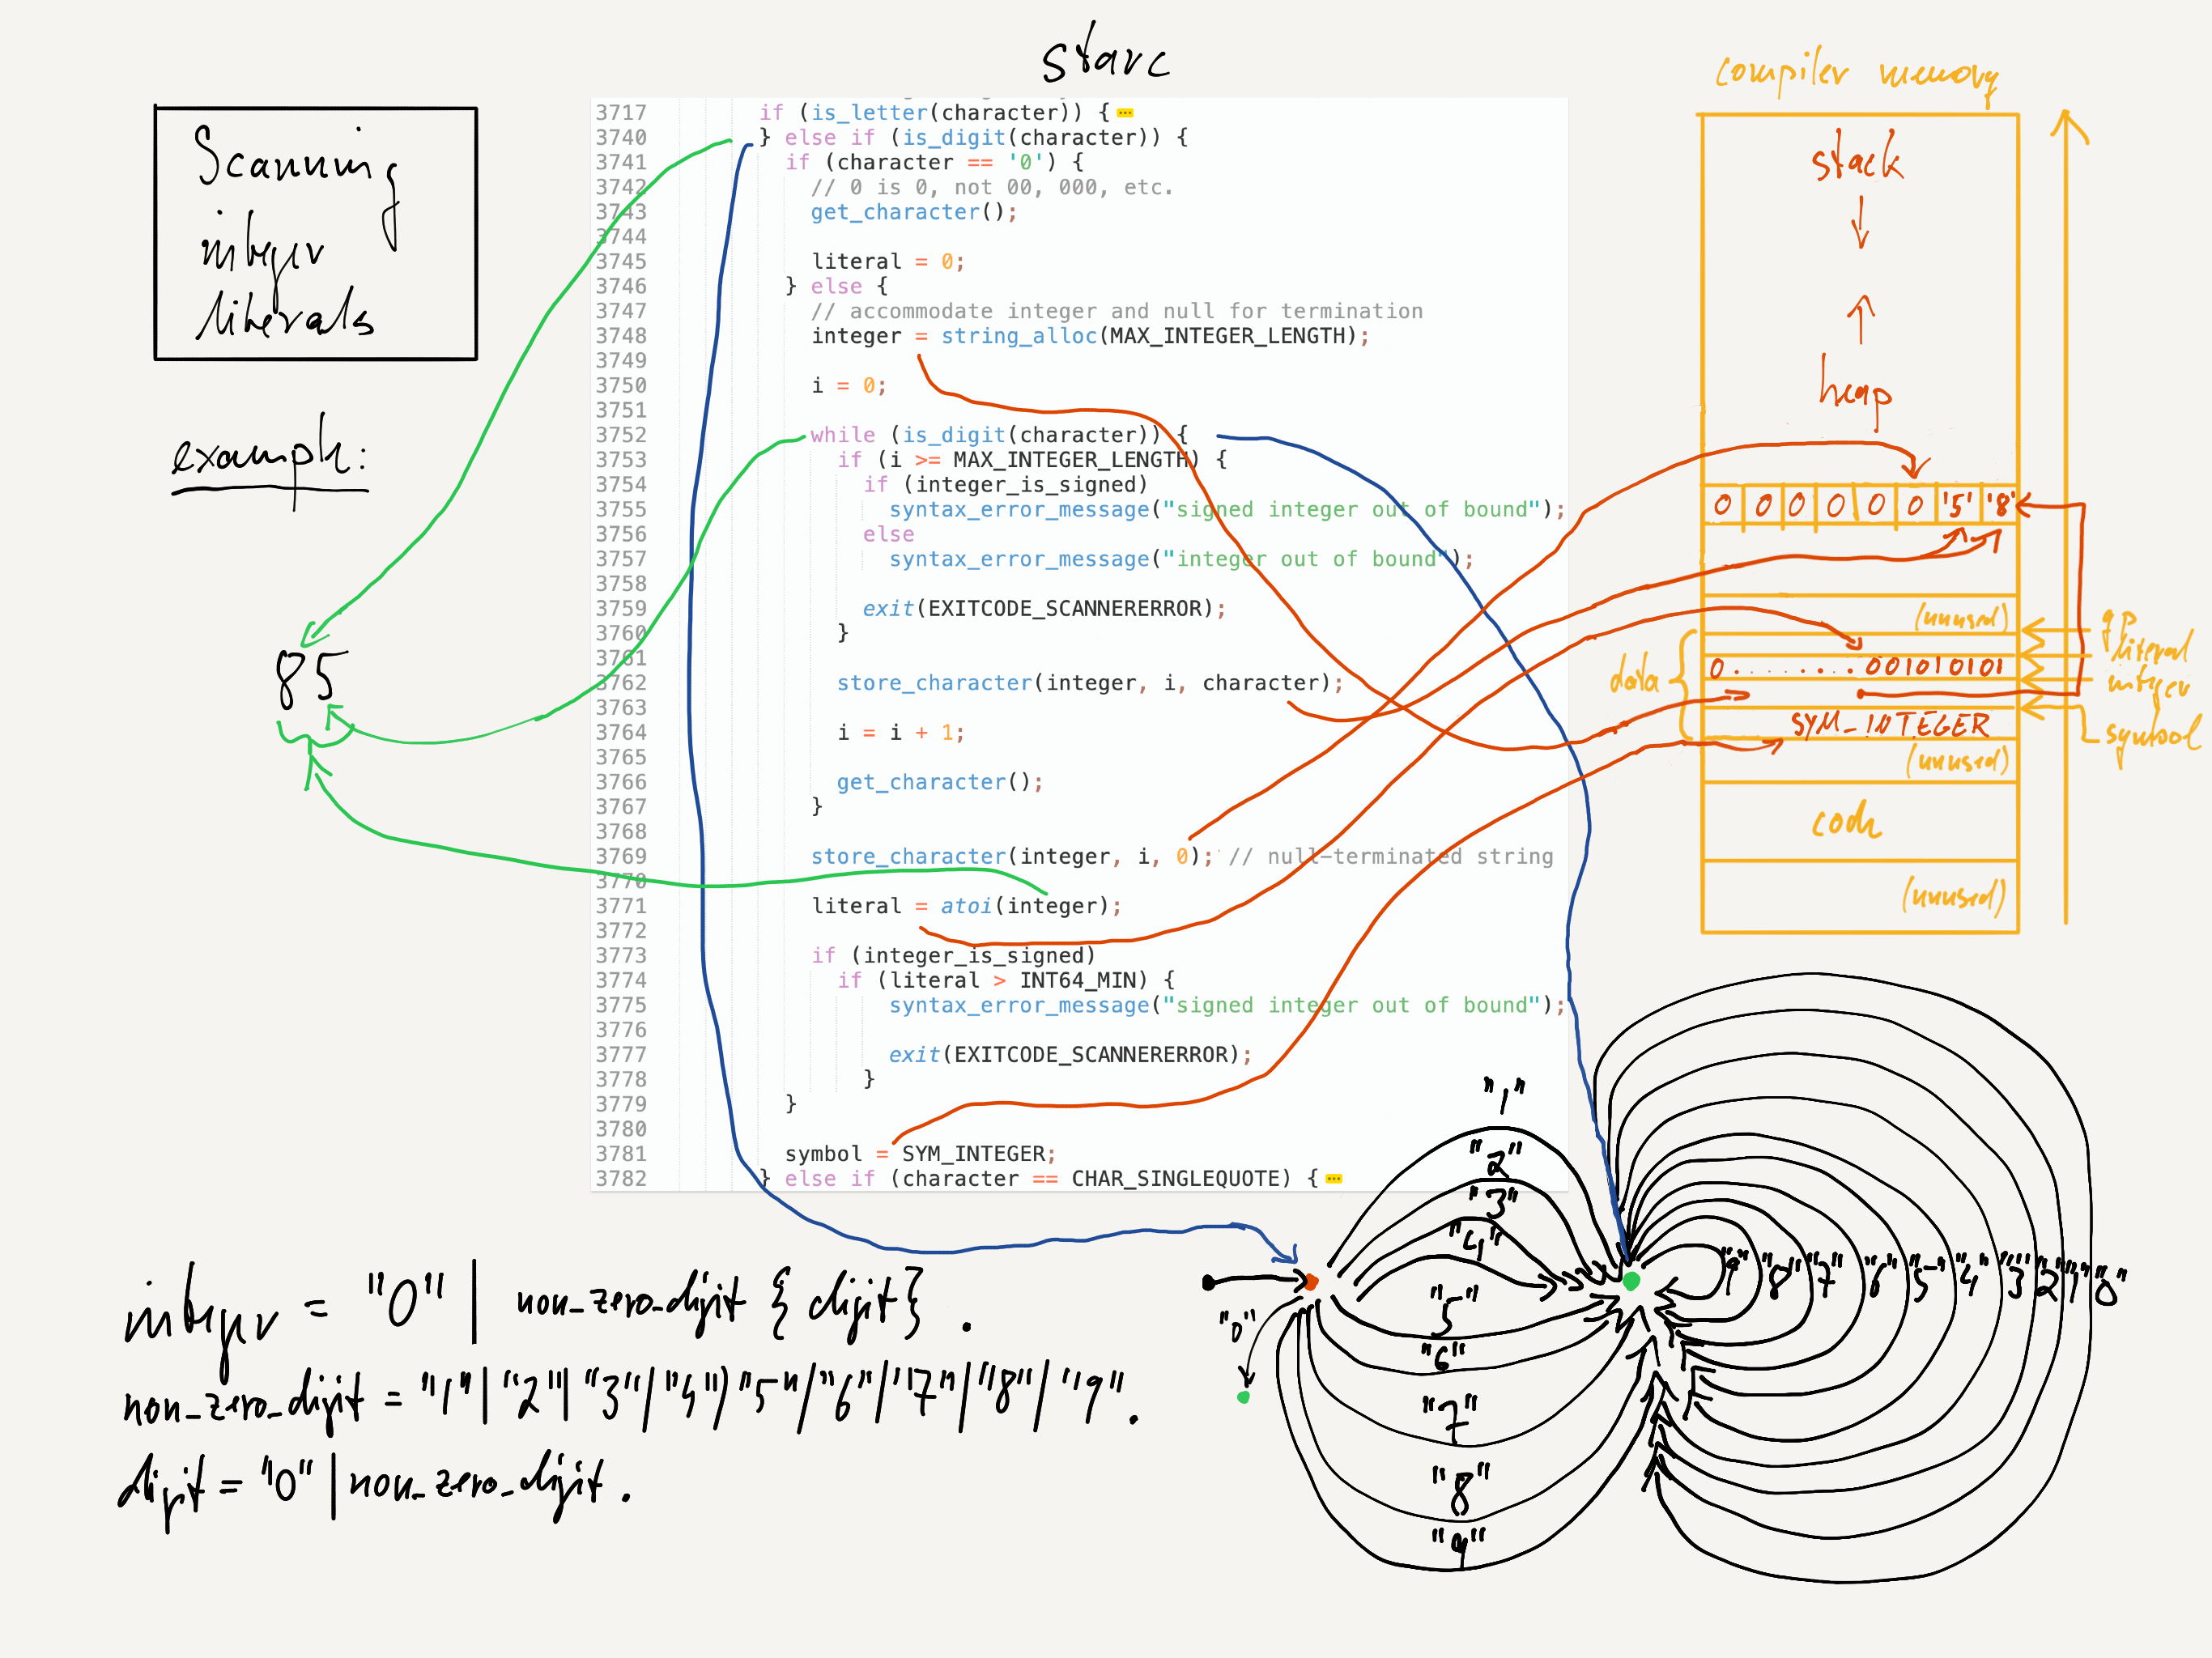 starc
Scanning
integer
literals
example:
85
3717 if (is_letter(character)) {
3740 } else if (is_digit(character)) {
3741 if (character == '0') {
3742 // 0 is 0, not 00, 000, etc.
3743 get_character();
3744
3745 literal = 0;
3746 } else {
3747 // accommodate integer and null for termination
3748 integer = string_alloc(MAX_INTEGER_LENGTH);
3749
3750 i = 0;
3751
3752 while (is_digit(character)) {
3753 if (i >= MAX_INTEGER_LENGTH) {
3754 if (integer_is_signed)
3755 syntax_error_message("signed integer out of bound");
3756 else
3757 syntax_error_message("integer out of bound");
3758
3759 exit(EXITCODE_SCANNERERROR);
3760 }
3761
3762 store_character(integer, i, character);
3763
3764 i = i + 1;
3765
3766 get_character();
3767 }
3768
3769 store_character(integer, i, 0); // null-terminated string
3770
3771 literal = atoi(integer);
3772
3773 if (integer_is_signed)
3774 if (literal > INT64_MIN) {
3775 syntax_error_message("signed integer out of bound");
3776
3777 exit(EXITCODE_SCANNERERROR);
3778 }
3779 }
3780
3781 symbol = SYM_INTEGER;
3782 } else if (character == CHAR_SINGLEQUOTE) {
compiler memory
stack
heap
0 0 0 0 0 0 '5' '8'
(unused)
gp
literal
data
0........001010101
integer
SYM_INTEGER
symbool
(unused)
code
(unused)
integer = "0" | non_zero_digit { digit } .
non_zero_digit = "1" | "2" | "3" | "4" | "5" | "6" | "7" | "8" | "9" .
digit = "0" | non_zero_digit .
"1"
"2"
"3"
"4"
"0"
"5"
"6"
"7"
"8"
"9"
"9" "8" "7" "6" "5" "4" "3" "2" "1" "0"